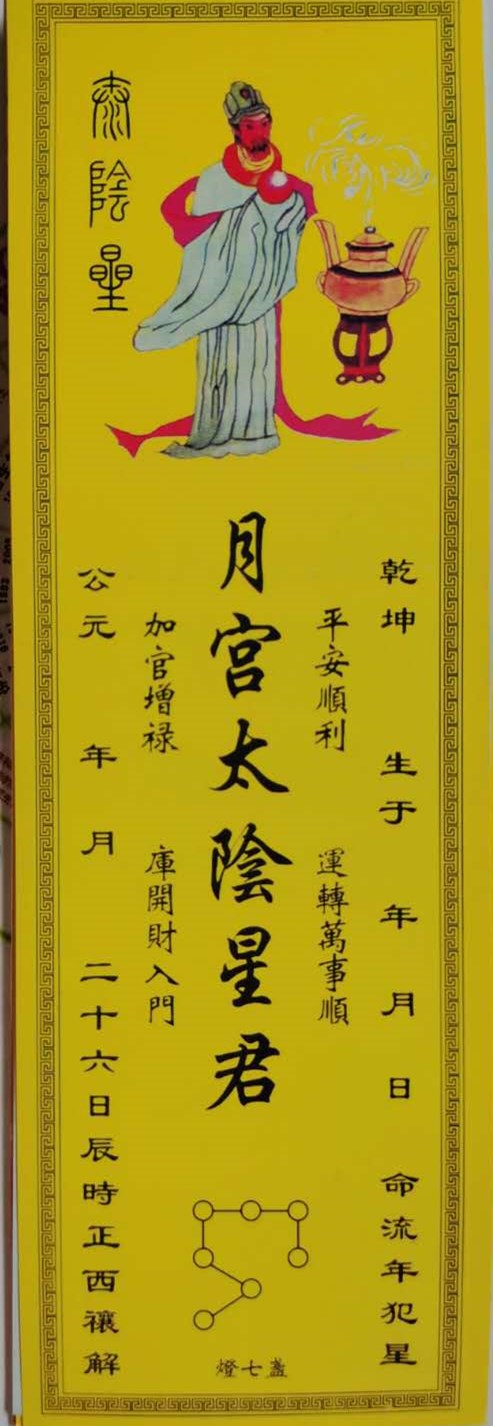 泰陰星
乾坤 生于 年 月 日 命流年犯星
平安順利 運轉萬事順
月宮太陰星君
加官增禄 庫開財入門
公元 年 月 二十六日辰時正西禳解
燈七盞